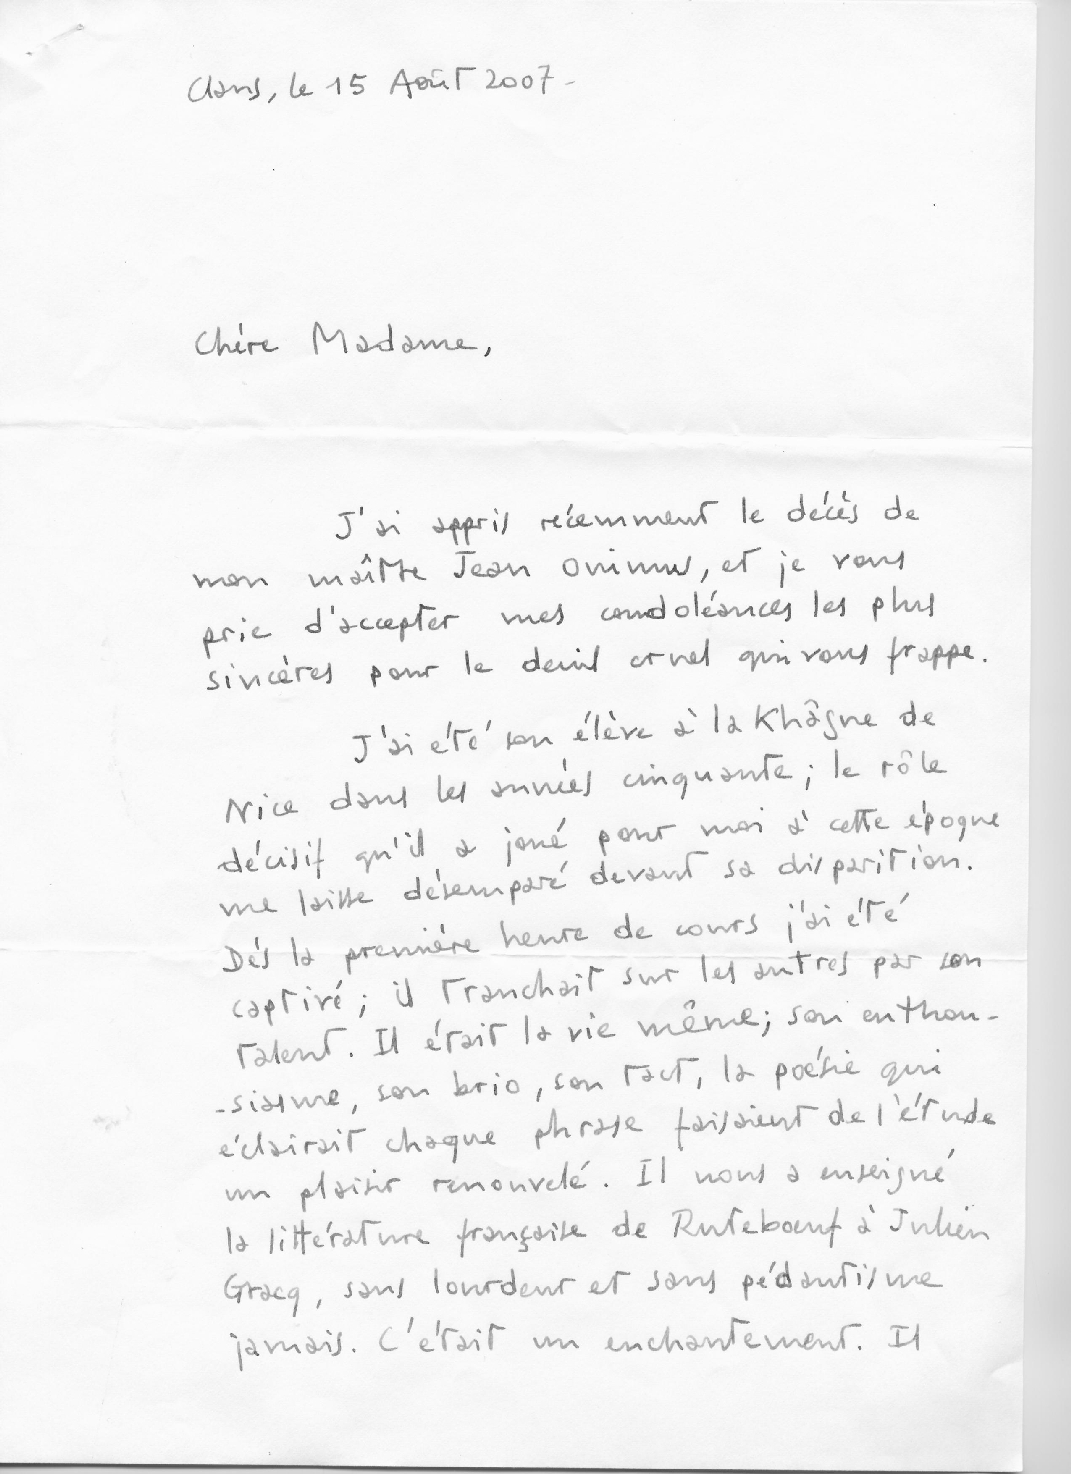 Clans, le 15 Août 2007 -
Chère Madame,
J'ai appris récemment le décès de
mon maître Jean Onimus, et je vous
prie d'accepter mes condoléances les plus
sincères pour le deuil cruel qui vous frappe.
J'ai été son élève à la Khâgne de
Nice dans les années cinquante ; le rôle
décisif qu'il a joué pour moi à cette époque
me laisse désemparé devant sa disparition.
Dès la première heure de cours j'ai été
captivé ; il tranchait sur les autres par son
talent. Il était la vie même ; son enthou-
-siasme, son brio, son tact, la poésie qui
éclairait chaque phrase faisaient de l'étude
un plaisir renouvelé. Il nous a enseigné
la littérature française de Rutebœuf à Julien
Gracq, sans lourdeur et sans pédantisme
jamais. C'était un enchantement. Il